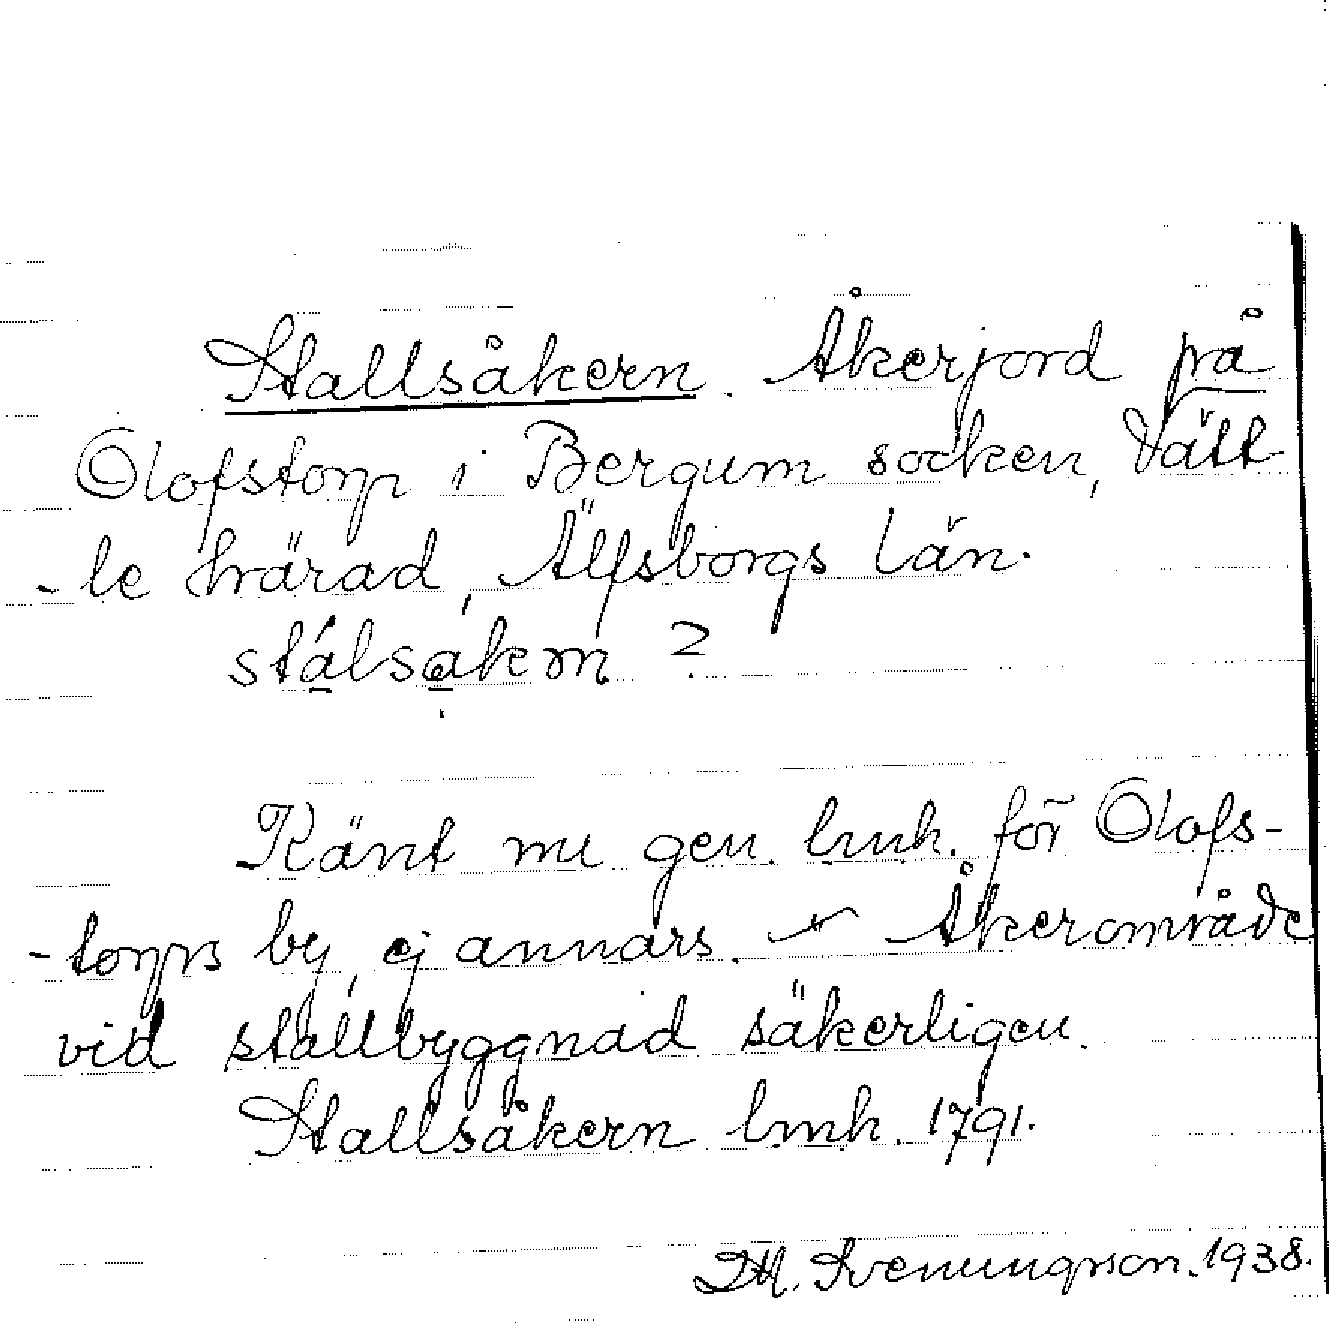 Stallsåkern. Åkerjord på
Olofstorp i Bergum socken, Vätt
-le härad, Älfsborgs län.
stálsakɐn ?
Känt nu gen. lmh. för Olofs-
-torps by, ej annars. Åkerområde
vid stallbyggnad säkerligen.
Stallsåkern lmh. 1791.
Svenungsson. 1938.